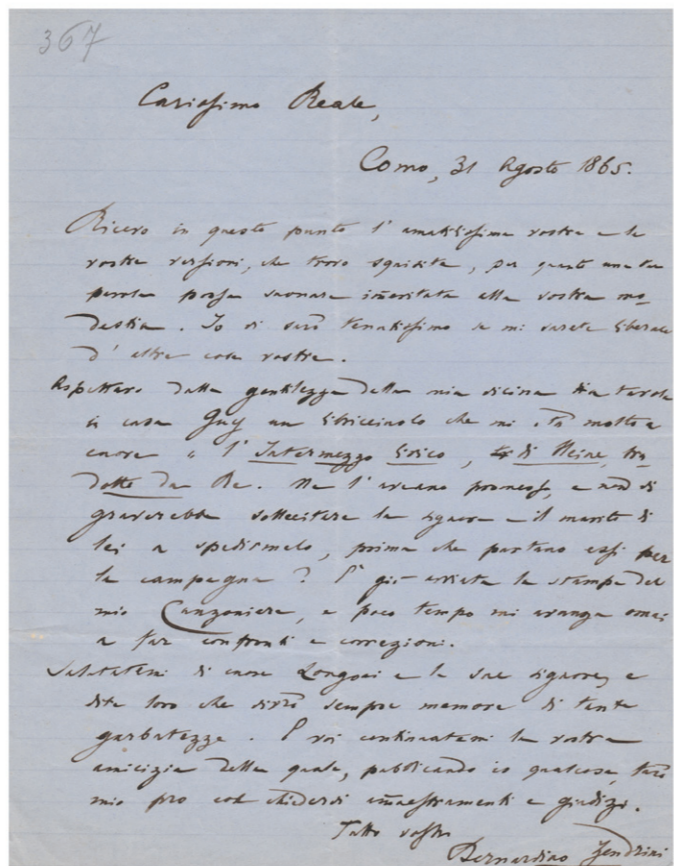 367
Carissimo Reale,
Como, 31 Agosto 1865.
Ricevo in questo punto l'amatissima vostra e le
vostre versioni, che trovo squisite, per quanto una tal
parola possa suonare immeritata alla vostra mo-
destia. Io vi sarò tenutissimo se mi sarete liberale
d'altre cose vostre.
Aspettavo dalla gentilezza della mia vicina di tavola
in casa Guy un libriccinolo che mi sta molto a
cuore: l'Intermezzo lirico, di Heine, tra-
dotto da Re. Me l'aveano promesso, e non vi
graverebbe sollecitare la signora e il marito di
lei a spedirmelo, prima che partano essi per
la campagna? È già avviata la stampa del
mio Canzoniere, e poco tempo mi avanza omai
a far confronti e correzioni.
Salutatemi di cuore Longoni e le sue signore, e
dite loro che sempre memore di tante
garbatezze. E voi continuatemi la vostra
amicizia della quale, publicando io qualcosa, farò
mio pro col chiedervi ammaestramenti e giudizi.
Tutto vostro
Bernardino Zendrini